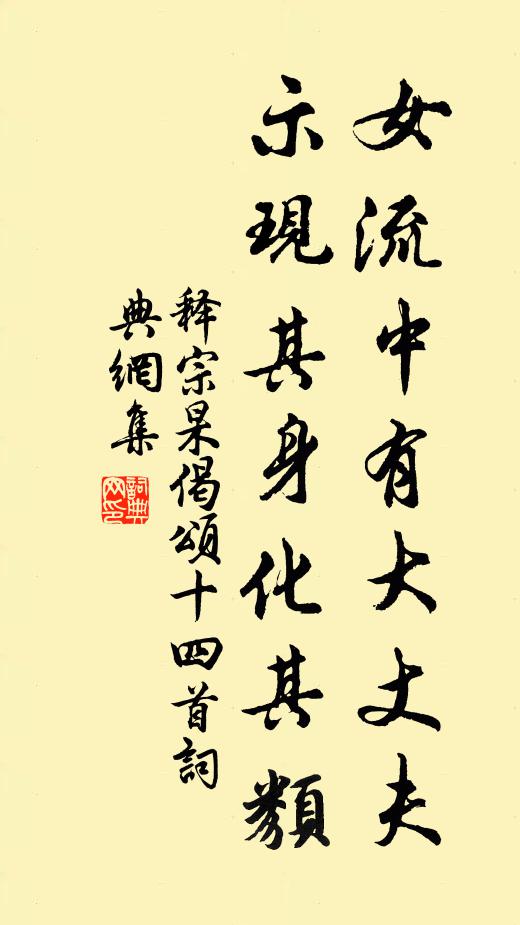 女流中有大丈夫
示現其身化其類
释宗杲偈頌十四首詞
典網集
詞典网印